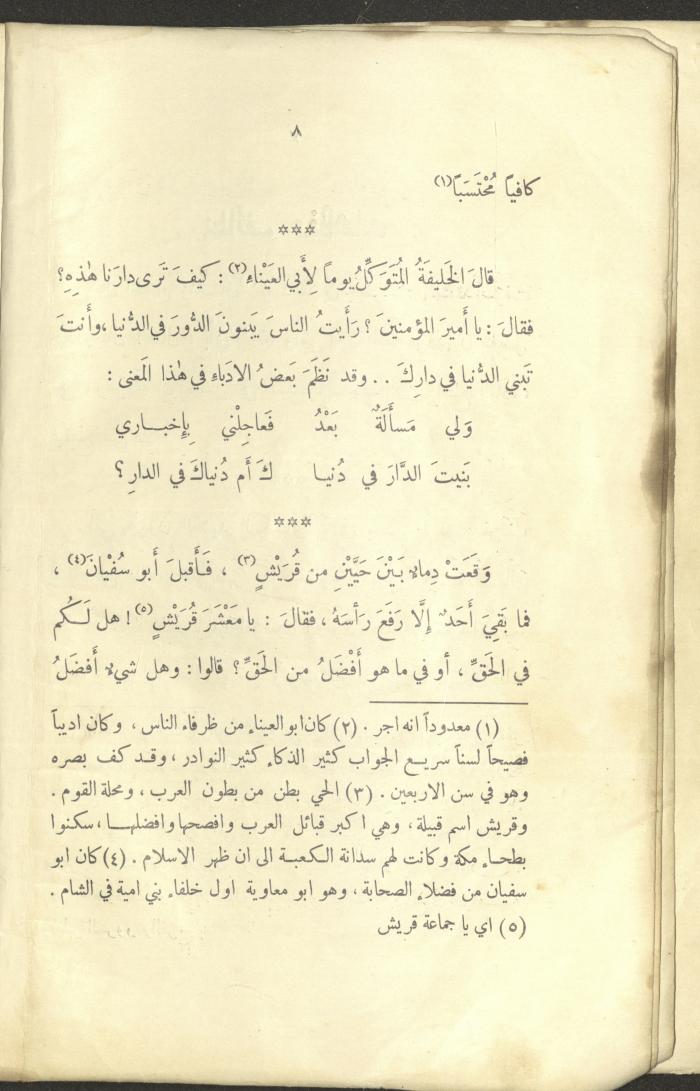 ٨
كافياً مُحْتَسَباً(١)
***
قالَ الخَليفَةُ المُتَوَكِّلُ يوماً لِأَبي العَيْناءِ(٢) : كيفَ تَرى دارَنا هٰذِهِ؟
فقالَ : يا أَميرَ المؤمنينَ ؟ رَأَيتُ الناسَ يَبنونَ الدُّورَ في الدُّنيا ، وأَنتَ
تَبني الدُّنيا في دارِكَ . . وقد نَظَمَ بَعضُ الادَباءِ في هٰذا المَعنى :
وَلي مَسأَلَةٌ بَعْدُ فَعاجِلْني بِإِخبـاري
بَنيتَ الدَّارَ في دُنيـا كَ أَم دُنياكَ في الدارِ؟
***
وَقَعَتْ دِماءٌ بَيْنَ حَيَّيْنِ من قُرَيْشٍ(٣) ، فَأَقبلَ أَبو سُفْيانَ(٤) ،
فما بَقِيَ أَحَدٌ إِلَّا رَفَعَ رَأسَهُ ، فقالَ : يا مَعْشَرَ قُرَيْشٍ(٥) ! هل لَكُم
في الحَقِّ ، أو في ما هو أَفْضَلُ من الحَقِّ ؟ قالوا : وهل شيءٌ أَفضَلُ
(١) معدوداً انه اجر . (٢) كان ابو العيناء من ظرفاء الناس ، وكان اديباً
فصيحاً لسناً سريع الجواب كثير الذكاء كثير النوادر ، وقد كف بصره
وهو في سن الاربعين . (٣) الحي بطن من بطون العرب ، ومحلة القوم .
وقريش اسم قبيلة ، وهي اكبر قبائل العرب وافصحها وافضلها ، سكنوا
بطحاء مكة وكانت لهم سدانة الكعبة الى ان ظهر الاسلام . (٤) كان ابو
سفيان من فضلاء الصحابة ، وهو ابو معاوية اول خلفاء بني امية في الشام .
(٥) اي يا جماعة قريش